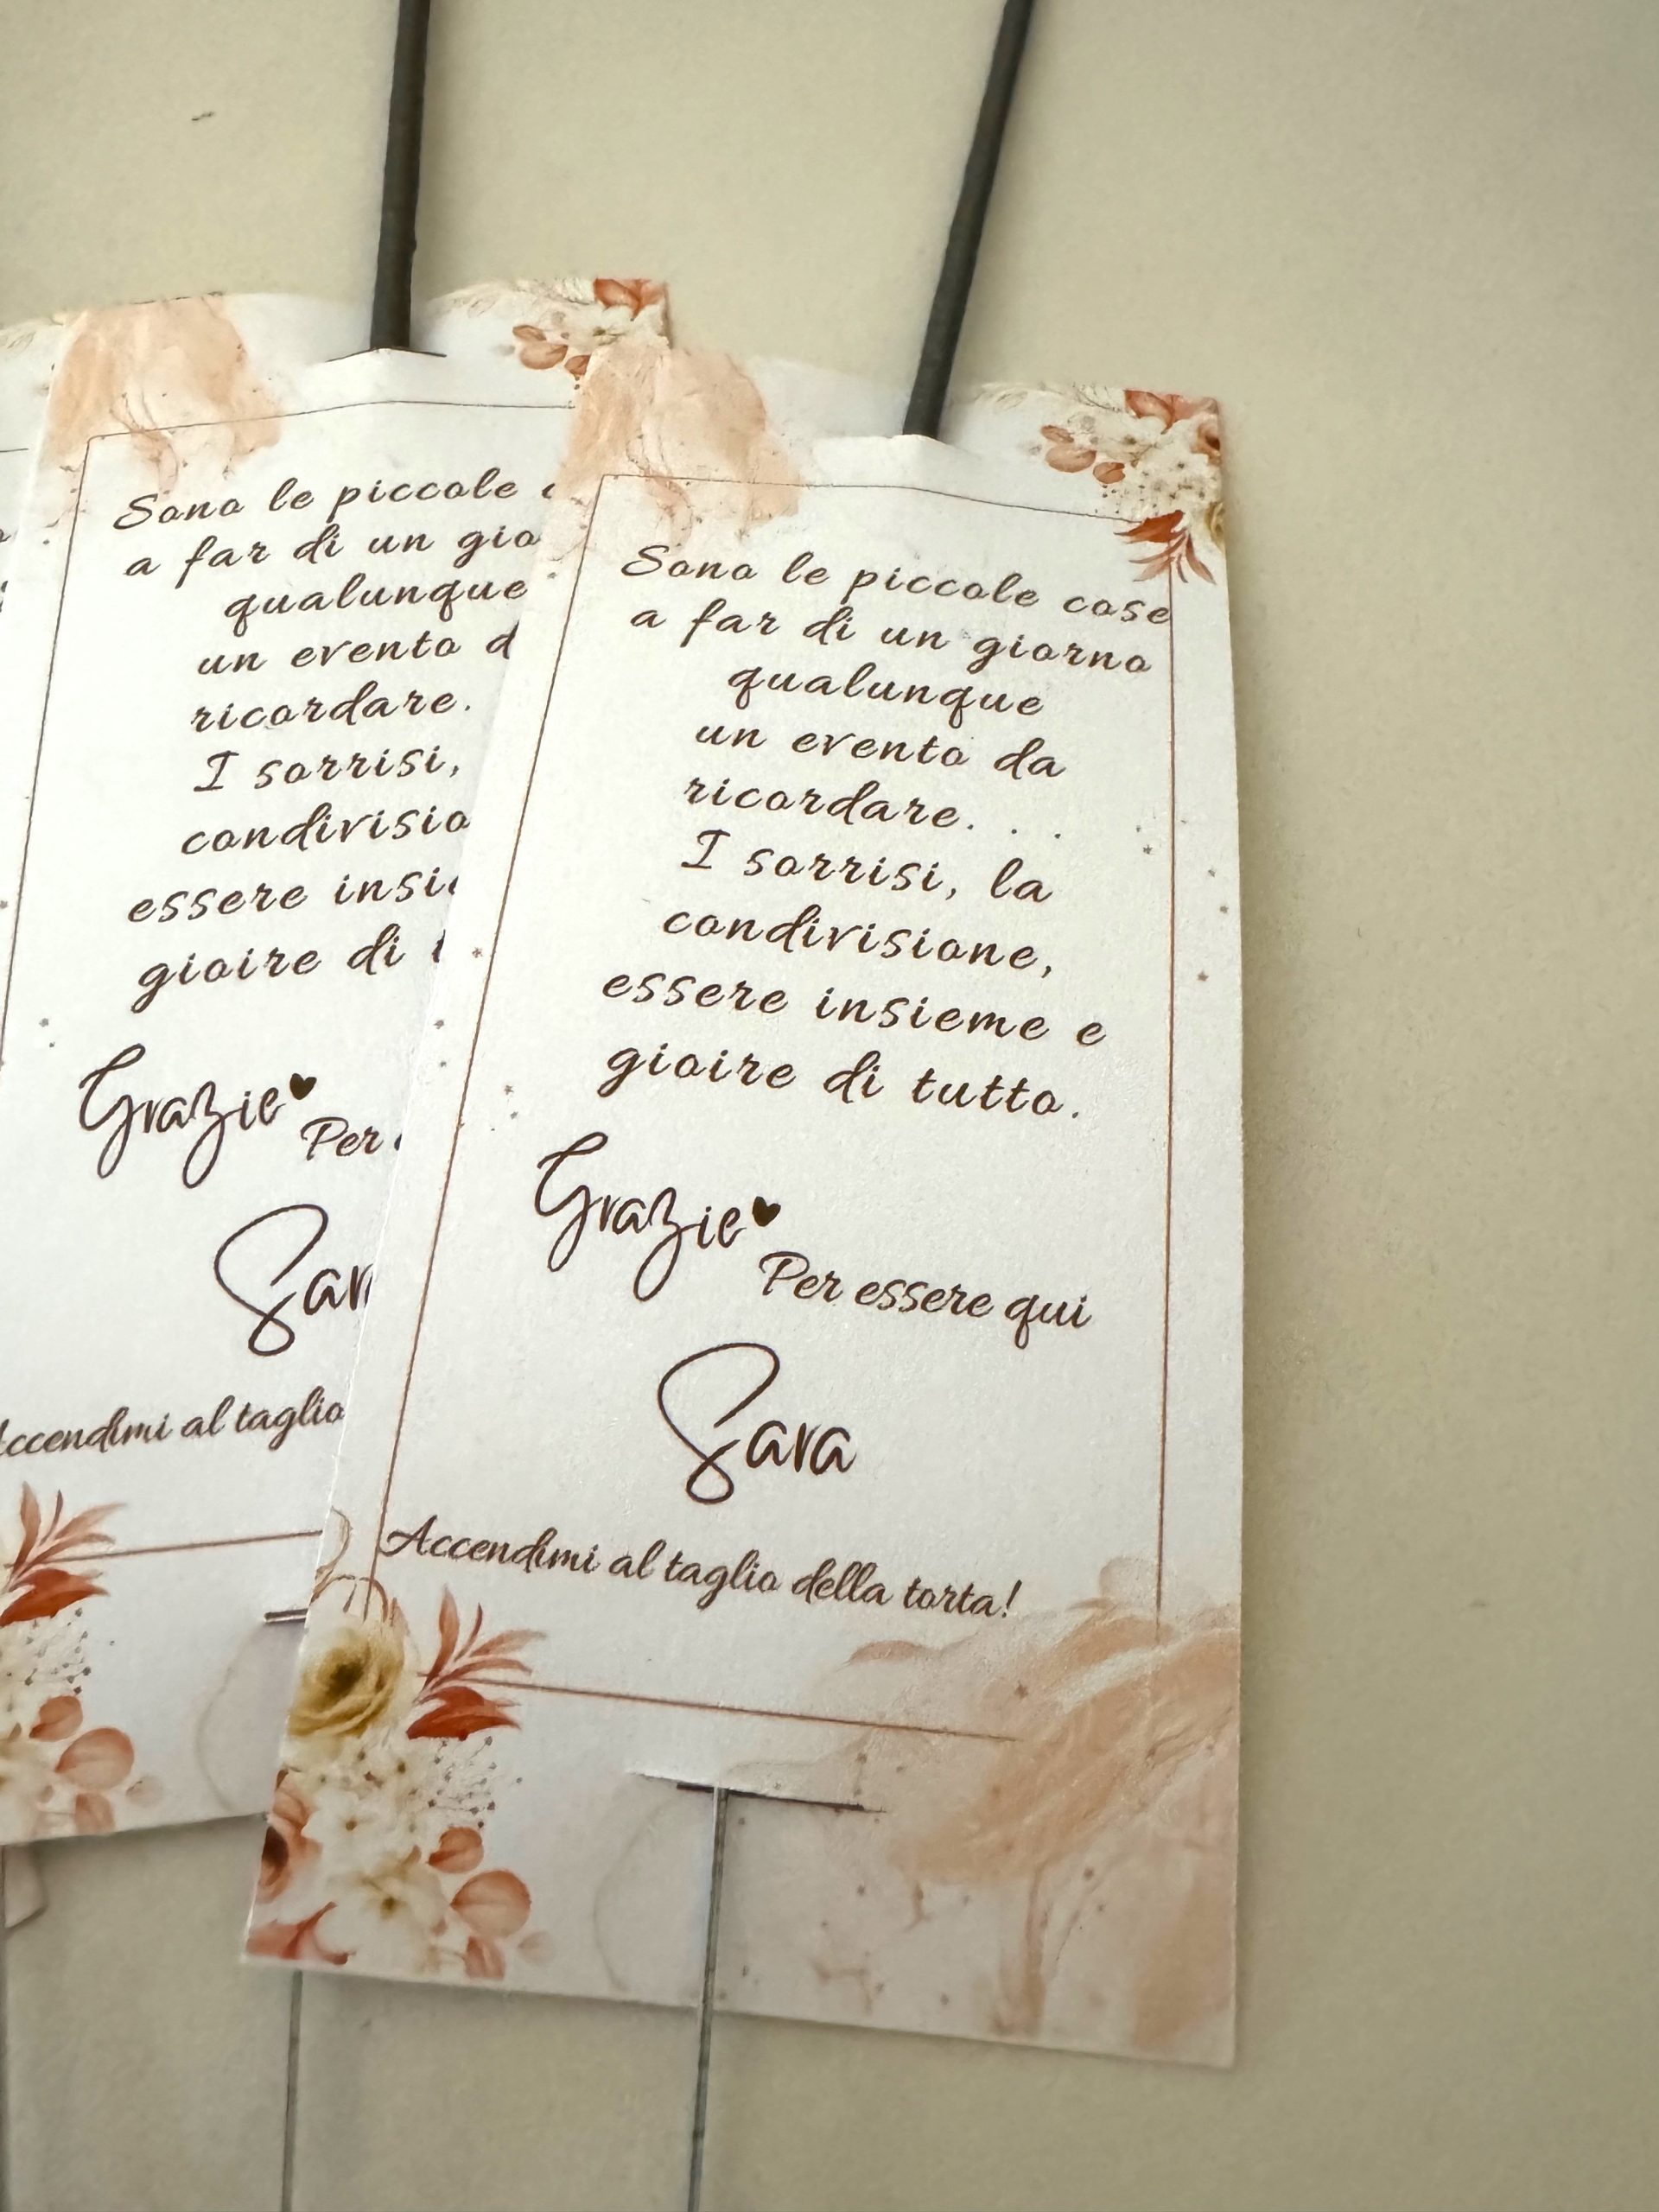 Sono le piccole
a far di un gio
qualunque
un evento d
ricordare.
I sorrisi,
condivisio
essere insi
gioire di
Grazie
Per
Sar
ccendimi al taglio
Sono le piccole cose
a far di un giorno
qualunque
un evento da
ricordare. . .
I sorrisi, la
condivisione,
essere insieme e
gioire di tutto.
Grazie
Per essere qui
Sara
Accendimi al taglio della torta!